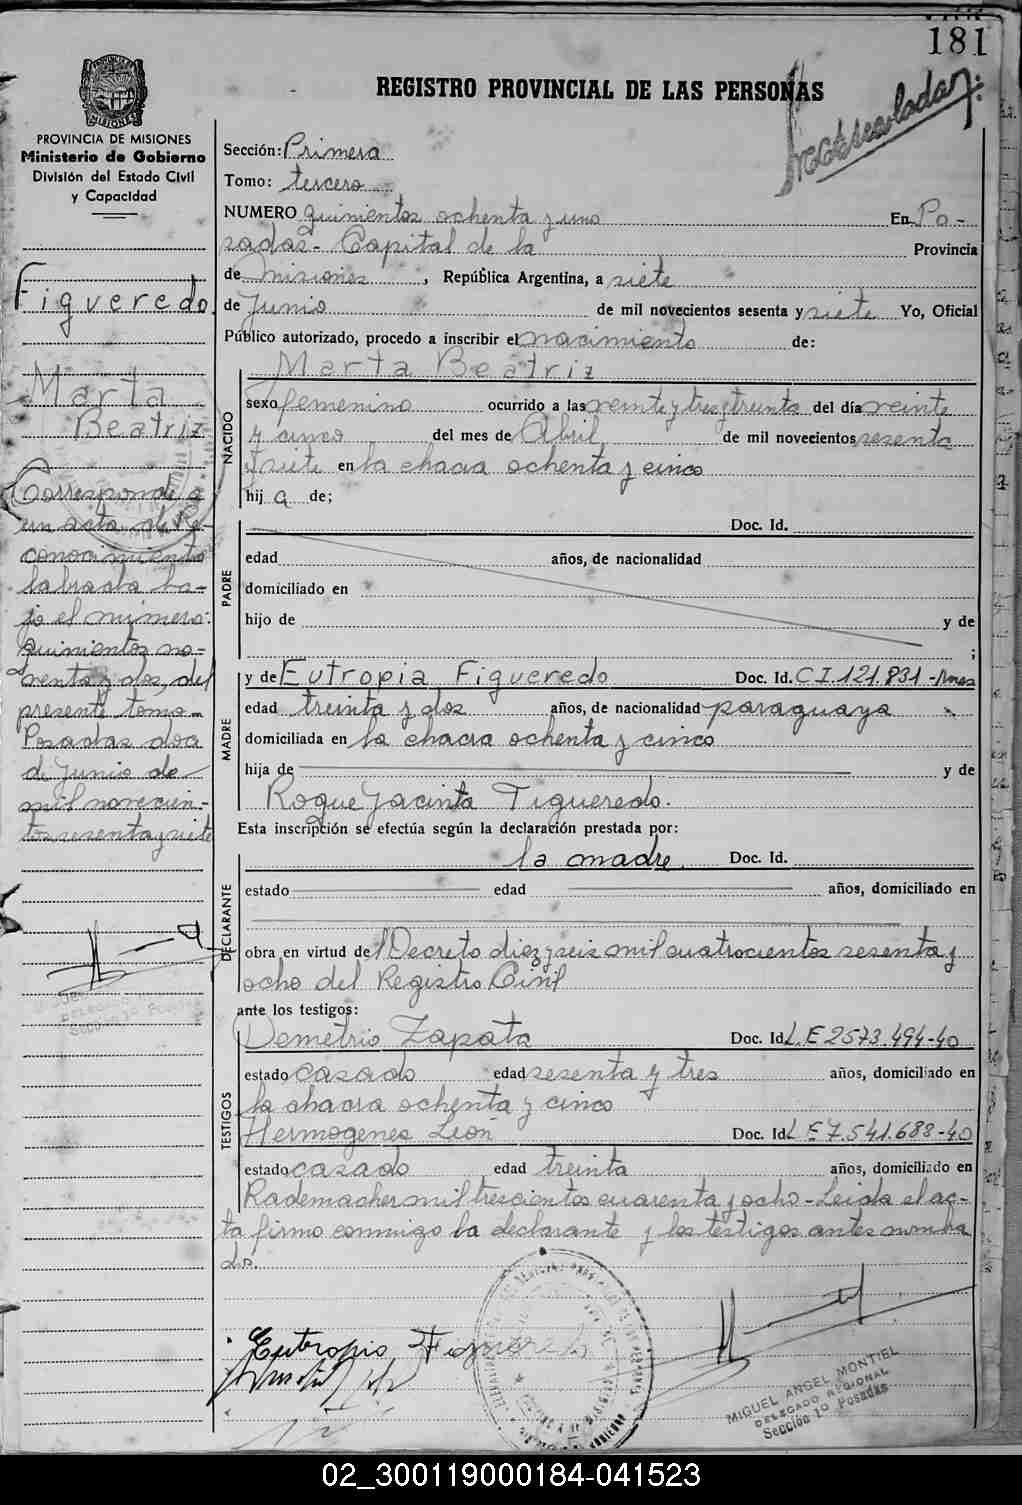 181
REGISTRO PROVINCIAL DE LAS PERSONAS
PROVINCIA DE MISIONES
Ministerio de Gobierno
División del Estado Civil
y Capacidad
Figueredo
Marta
Beatriz
Corresponde a
un acta de re-
conocimiento
labrada ba-
jo el número:
quinientos no-
venta y dos, del
presente tomo-
Posadas doce
de Junio de
mil novecien-
tos sesenta y siete
Sección: Primera
Tomo: tercero
NUMERO quinientos ochenta y uno En Po-
sadas- Capital de la Provincia
de Misiones, República Argentina, a siete
de Junio de mil novecientos sesenta y siete Yo, Oficial
Público autorizado, procedo a inscribir el nacimiento de:
Marta Beatriz
NACIDO
sexo femenino ocurrido a las veinte y tres y treinta del día veinte
y cinco del mes de Abril de mil novecientos sesenta
y siete en la chacra ochenta y cinco
hij a de;
PADRE
Doc. Id.
edad años, de nacionalidad
domiciliado en
hijo de y de
;
MADRE
y de Eutropia Figueredo Doc. Id. C I. 121.831-Mnes
edad treinta y dos años, de nacionalidad paraguaya
domiciliada en la chacra ochenta y cinco
hija de y de
Roque Jacinta Figueredo.
Esta inscripción se efectúa según la declaración prestada por:
DECLARANTE
la madre. Doc. Id.
estado edad años, domiciliado en
obra en virtud de l Decreto diez y seis mil cuatrocientos sesenta y
ocho del Registro Civil
ante los testigos:
TESTIGOS
Demetrio Zapata Doc. Id. L.E 2573.494-40
estado casado edad sesenta y tres años, domiciliado en
la chacra ochenta y cinco
Hermogenes León Doc. Id. L E 7.541.688-40
estado casado edad treinta años, domiciliado en
Rademacher mil trescientos cuarenta y ocho- Leida el ac-
ta firmo conmigo la declarante y los testigos antes nombra
do.
Eutropia Figueredo
MIGUEL ANGEL MONTIEL
DELEGADO REGIONAL
Sección 1º Posadas
02_300119000184-041523